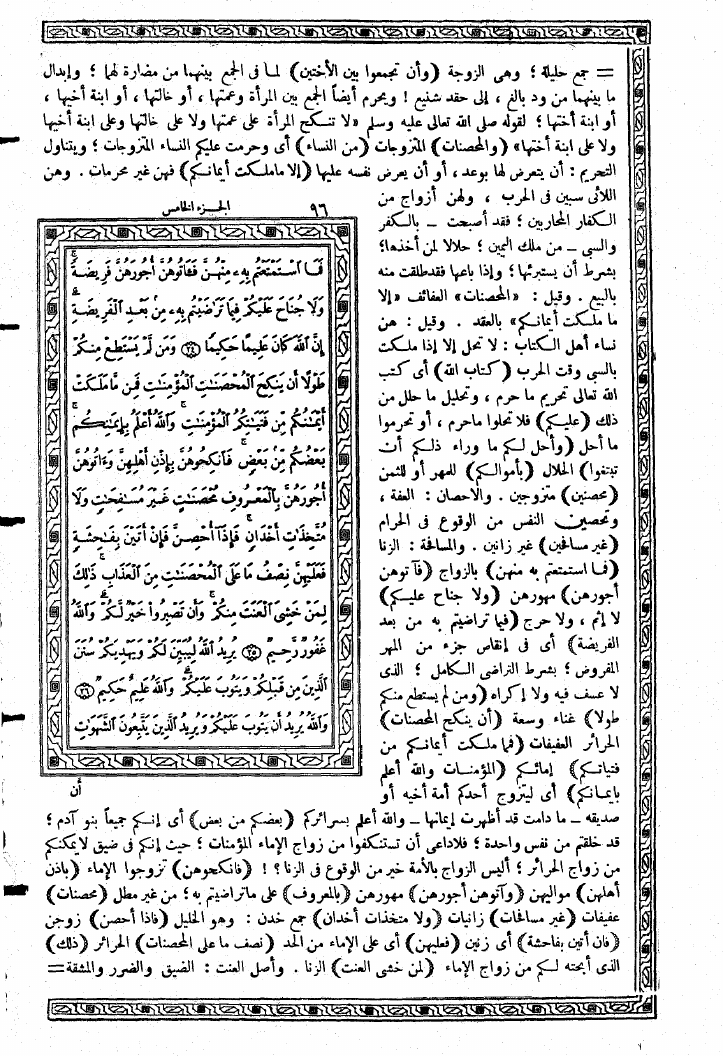 = جمع حليلة ؛ وهى الزوجة (وأن تجمعوا بين الأختين) لما فى الجمع بينهما من مضارة لهما ؛ وإبدال
ما بينهما من ود بالغ ، إلى حقد شنيع ! ويحرم أيضاً الجمع بين المرأة وعمتها ، أو خالتها ، أو ابنة أخيها ،
أو ابنة أختها ؛ لقوله صلى الله تعالى عليه وسلم «لا تنكح المرأة على عمتها ولا على خالتها وعلى ابنة أخيها
ولا على ابنة أختها» (والمحصنات) المتزوجات (من النساء) أى وحرمت عليكم النساء المتزوجات ؛ ويتناول
التحريم : أن يتعرض لها بوعد ، أو أن يعرض نفسه عليها (إلا ما ملكت أيمانكم) فهن غير محرمات . وهن
اللائى سبين فى الحرب ، ولهن أزواج من
الكفار المحاربين ؛ فقد أصبحت – بالكفر
والسبى – من ملك اليمين ؛ حلالا لمن أخذها؛
بشرط أن يستبرئها ؛ وإذا باعها فقد طلقت منه
بالبيع . وقيل : «المحصنات» العفائف «إلا
ما ملكت أيمانكم» بالعقد . وقيل : هن
نساء أهل الكتاب : لا تحل إلا إذا ملكت
بالسبى وقت الحرب (كتاب الله) أى كتب
الله تعالى تحريم ما حرم ، وتحليل ما حلل من
ذلك (عليكم) فلا تحلوا ما حرم ، أو تحرموا
ما أحل (وأحل لكم ما وراء ذلكم أن
تبتغوا) الحلال (بأموالكم) للمهر أو للثمن
(محصنين) متزوجين . والاحصان : العفة ،
وتحصين النفس من الوقوع فى الحرام
(غير مسافحين) غير زانين . والمسافحة : الزنا
(فما استمتعتم به منهن) بالزواج (فآتوهن
أجورهن) مهورهن (ولا جناح عليكم)
لا إثم ، ولا حرج (فيما تراضيتم به من بعد
الفريضة) أى فى إنقاص جزء من المهر
المفروض ؛ بشرط التراضى الكامل ؛ الذى
لا عسف فيه ولا إكراه (ومن لم يستطع منكم
طولا) غناء وسعة (أن ينكح المحصنات)
الحرائر العفيفات (فما ملكت أيمانكم من
فتياتكم) إمائكم (المؤمنات والله أعلم
بايمانكم) أى ليتزوج أحدكم أمة أخيه أو
٩٦ الجزء الخامس
فَمَا ٱسْتَمْتَعْتُم بِهِۦ مِنْهُنَّ فَـَٔاتُوهُنَّ أُجُورَهُنَّ فَرِيضَةً ۚ
وَلَا جُنَاحَ عَلَيْكُمْ فِيمَا تَرَٰضَيْتُم بِهِۦ مِنۢ بَعْدِ ٱلْفَرِيضَةِ ۚ
إِنَّ ٱللَّهَ كَانَ عَلِيمًا حَكِيمًا ﴿٢٤﴾ وَمَن لَّمْ يَسْتَطِعْ مِنكُمْ
طَوْلًا أَن يَنكِحَ ٱلْمُحْصَنَٰتِ ٱلْمُؤْمِنَٰتِ فَمِن مَّا مَلَكَتْ
أَيْمَٰنُكُم مِّن فَتَيَٰتِكُمُ ٱلْمُؤْمِنَٰتِ ۚ وَٱللَّهُ أَعْلَمُ بِإِيمَٰنِكُم ۚ
بَعْضُكُم مِّنۢ بَعْضٍ ۚ فَٱنكِحُوهُنَّ بِإِذْنِ أَهْلِهِنَّ وَءَاتُوهُنَّ
أُجُورَهُنَّ بِٱلْمَعْرُوفِ مُحْصَنَٰتٍ غَيْرَ مُسَٰفِحَٰتٍ وَلَا
مُتَّخِذَٰتِ أَخْدَانٍ ۚ فَإِذَآ أُحْصِنَّ فَإِنْ أَتَيْنَ بِفَٰحِشَةٍ
فَعَلَيْهِنَّ نِصْفُ مَا عَلَى ٱلْمُحْصَنَٰتِ مِنَ ٱلْعَذَابِ ۚ ذَٰلِكَ
لِمَنْ خَشِىَ ٱلْعَنَتَ مِنكُمْ ۚ وَأَن تَصْبِرُوا۟ خَيْرٌ لَّكُمْ ۗ وَٱللَّهُ
غَفُورٌ رَّحِيمٌ ﴿٢٥﴾ يُرِيدُ ٱللَّهُ لِيُبَيِّنَ لَكُمْ وَيَهْدِيَكُمْ سُنَنَ
ٱلَّذِينَ مِن قَبْلِكُمْ وَيَتُوبَ عَلَيْكُمْ ۗ وَٱللَّهُ عَلِيمٌ حَكِيمٌ ﴿٢٦﴾
وَٱللَّهُ يُرِيدُ أَن يَتُوبَ عَلَيْكُمْ وَيُرِيدُ ٱلَّذِينَ يَتَّبِعُونَ ٱلشَّهَوَٰتِ
أن
صديقه – ما دامت قد أظهرت إيمانها – والله أعلم بسرائركم (بعضكم من بعض) أى إنكم جميعاً بنو آدم ؛
قد خلقتم من نفس واحدة ؛ فلا داعى أن تستنكفوا من زواج الإماء المؤمنات ؛ حيث إنكم فى ضيق لا يمكنكم
من زواج الحرائر ؛ أليس الزواج بالأمة خير من الوقوع فى الزنا ؟ ! (فانكحوهن) تزوجوا الإماء (باذن
أهلهن) مواليهن (وآتوهن أجورهن) مهورهن (بالمعروف) على ما تراضيتم به ؛ من غير مطل (محصنات)
عفيفات (غير مسافحات) زانيات (ولا متخذات أخدان) جمع خدن : وهو الخليل (فاذا أحصن) زوجن
(فان أتين بفاحشة) أى زنين (فعليهن) أى على الإماء من الحد (نصف ما على المحصنات) الحرائر (ذلك)
الذى أبحته لكم من زواج الإماء (لمن خشى العنت) الزنا . وأصل العنت : الضيق والضرر والمشقة =